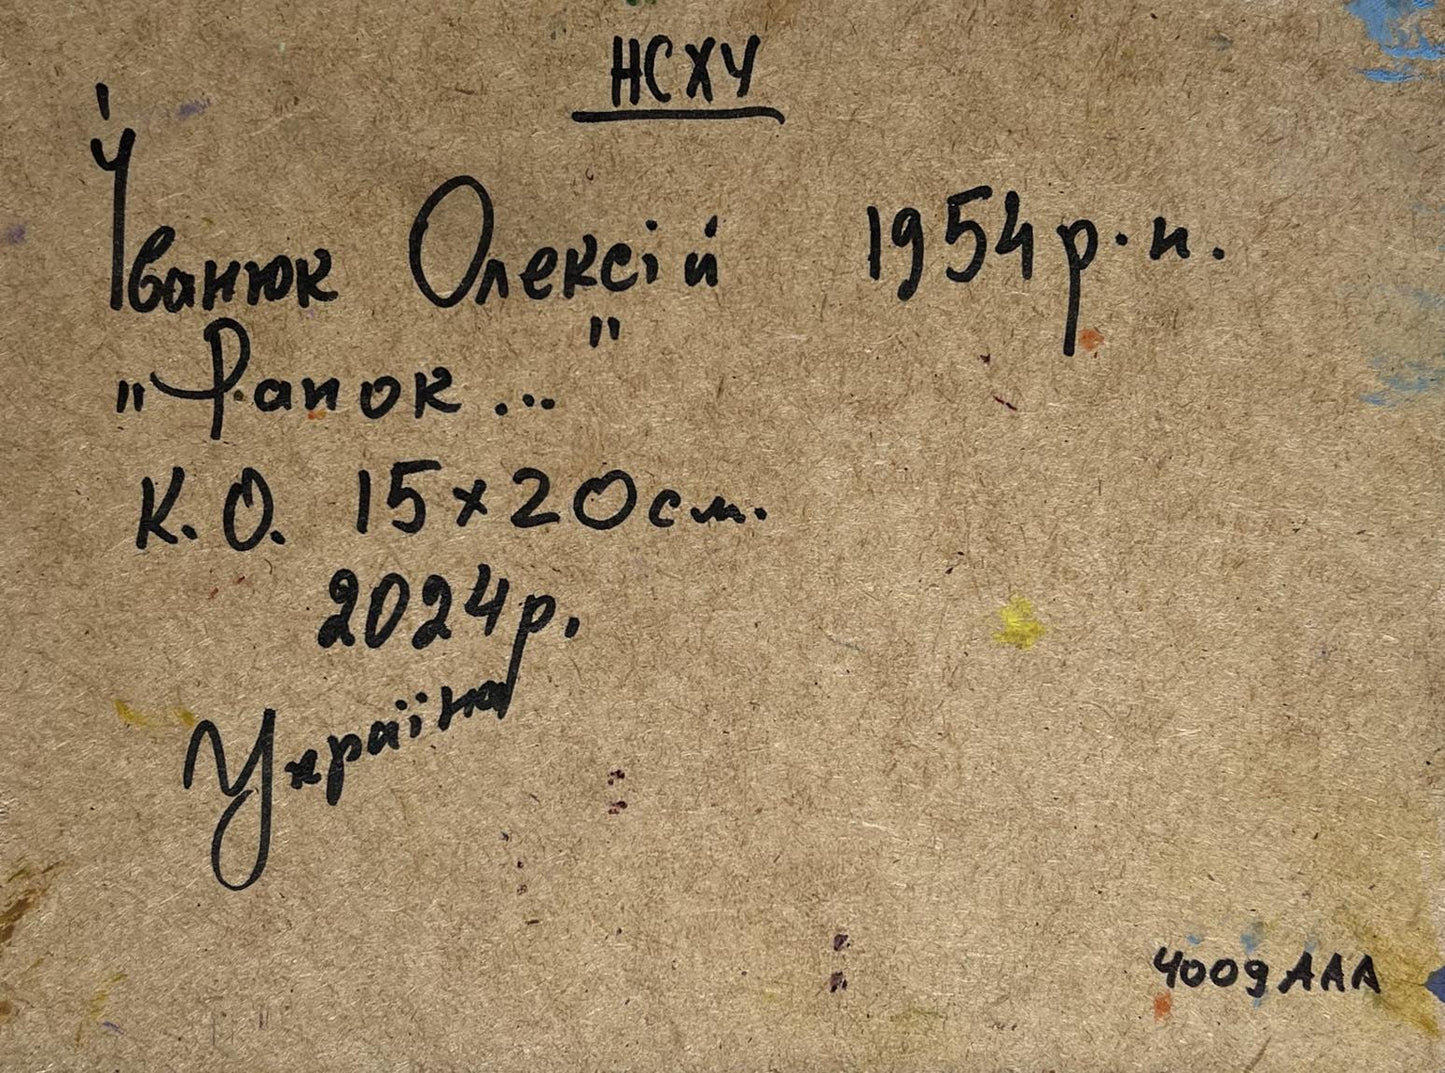 НСХУ
Іванюк Олексій 1954 р.н.
"Ранок..."
К.О. 15х20см.
2024р.
Україна
4009ААА